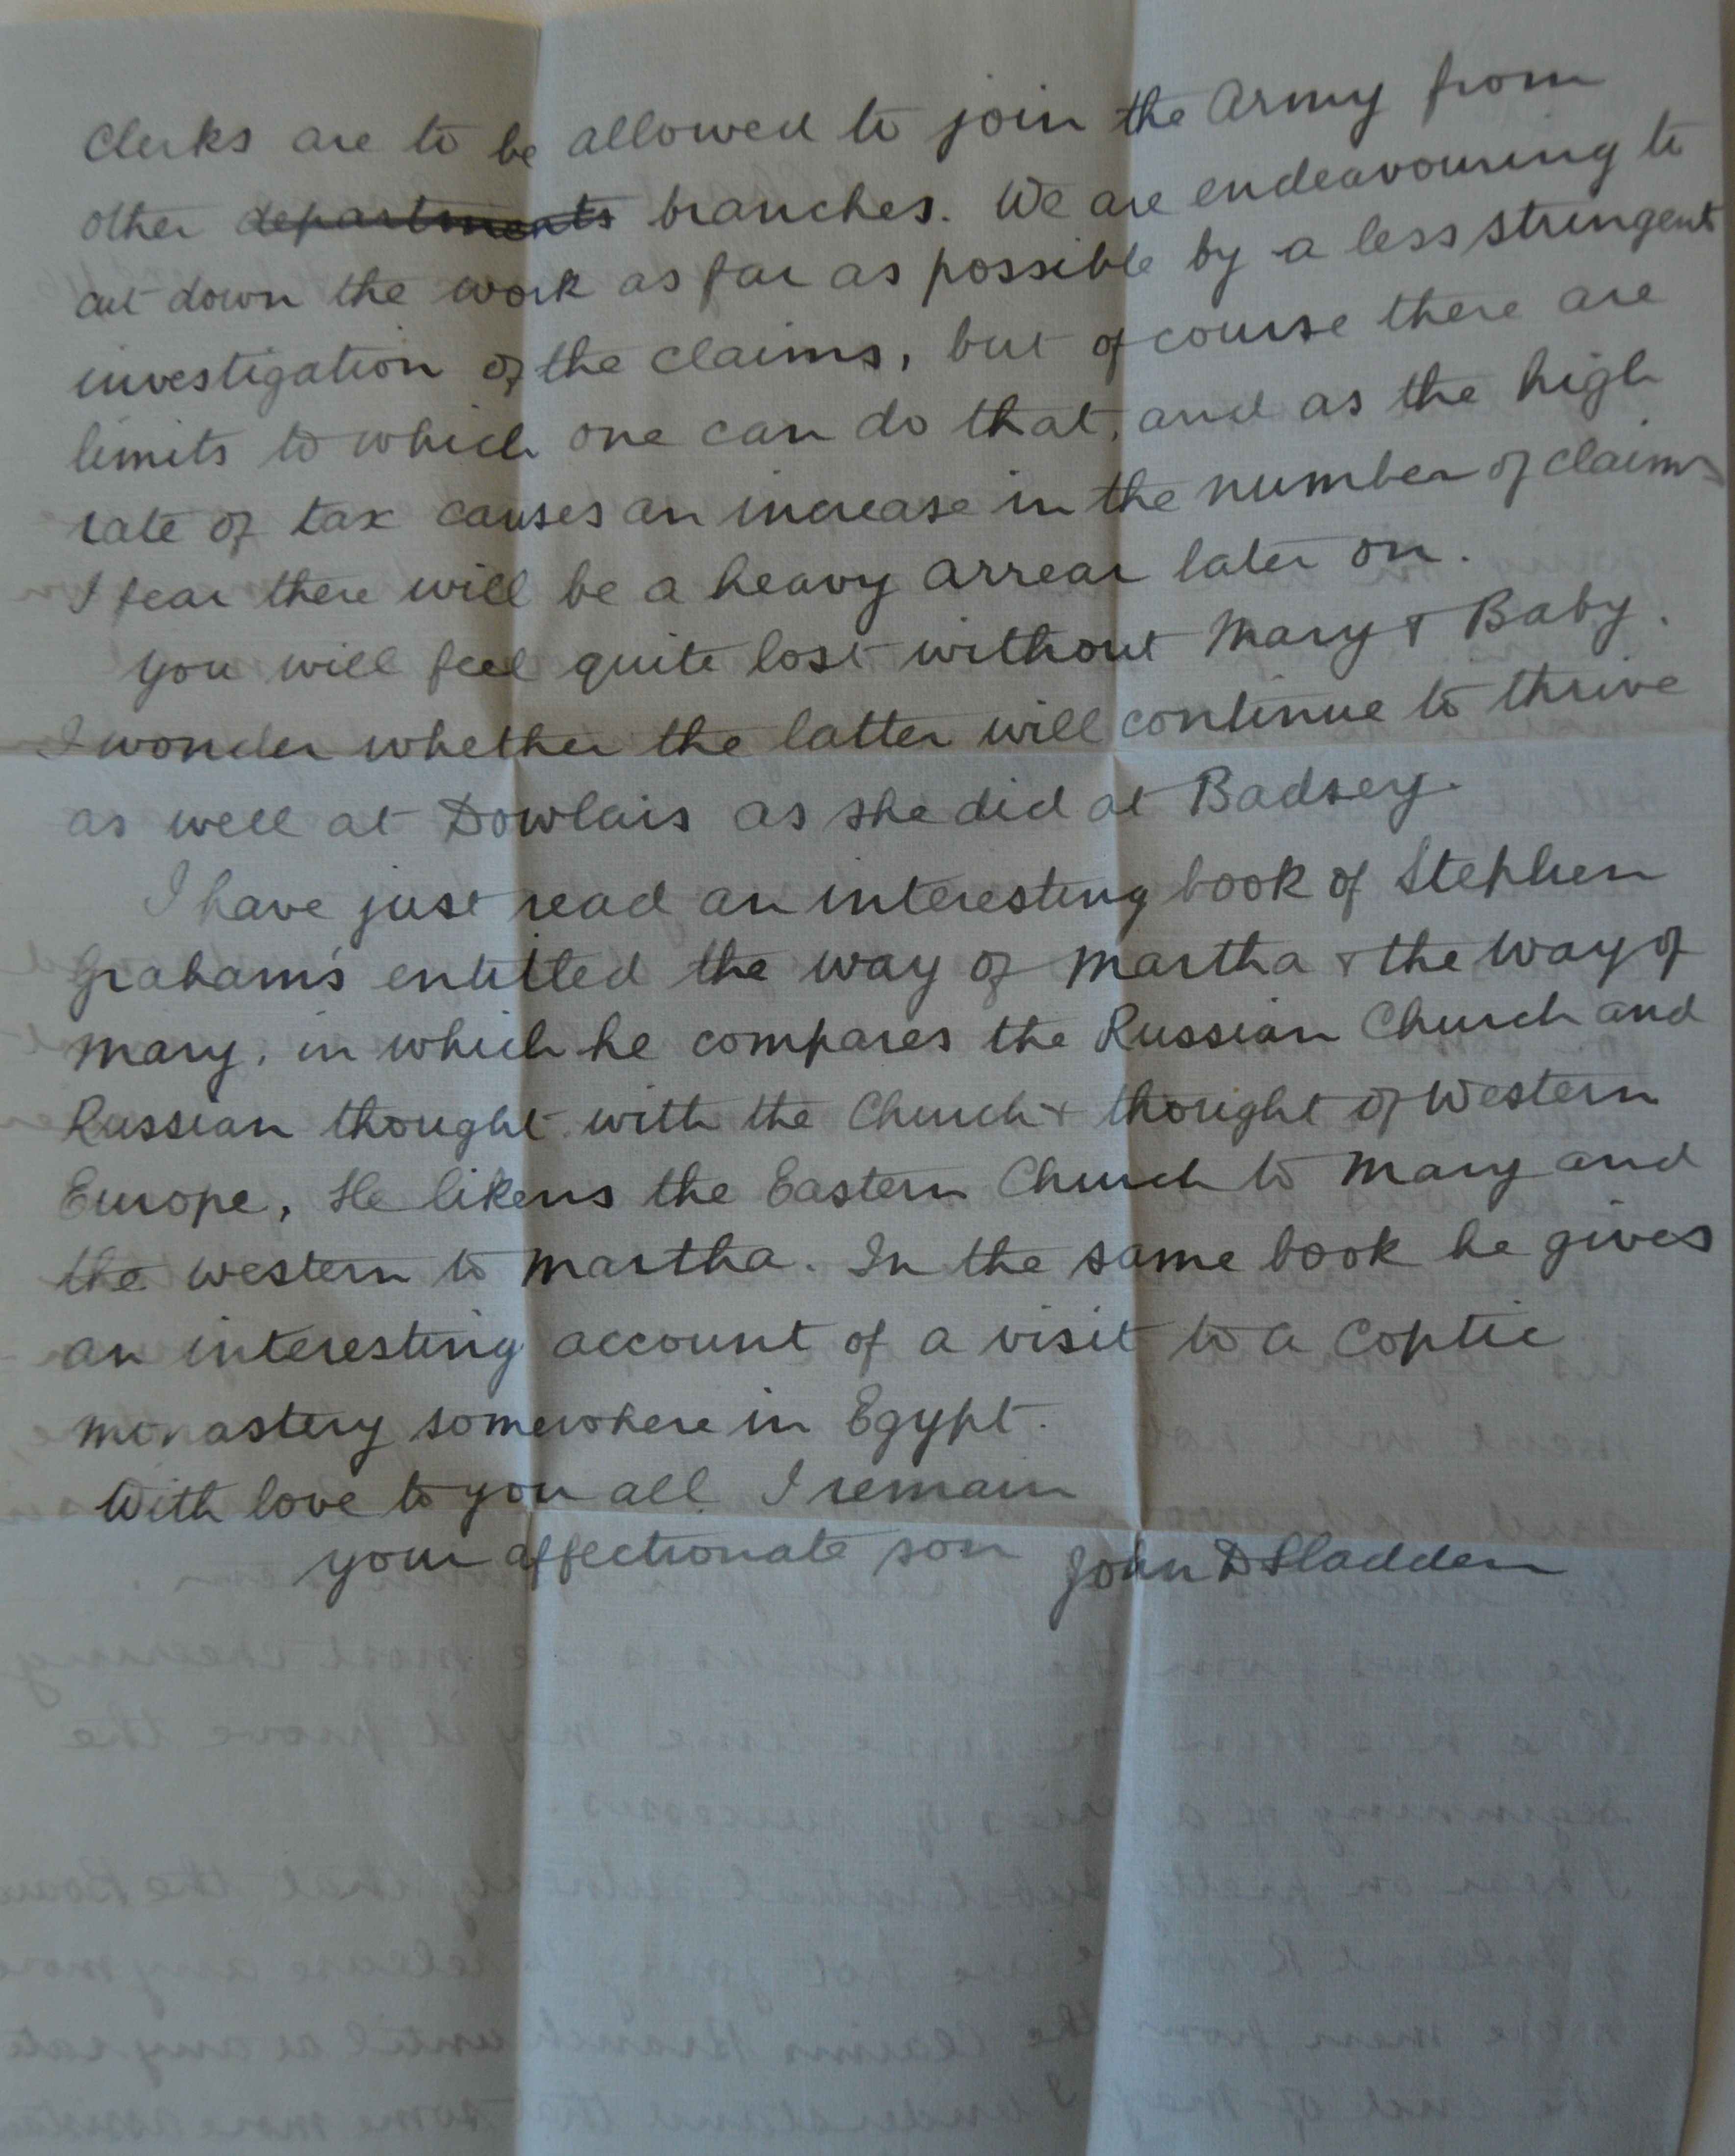 Clerks are to be allowed to join the Army from
other departments branches. We are endeavouring to
cut down the work as far as possible by a less stringent
investigation of the claims, but of course there are
limits to which one can do that, and as the high
rate of tax causes an increase in the number of claims
I fear there will be a heavy arrear later on.
You will feel quite lost without Mary & Baby.
I wonder whether the latter will continue to thrive
as well at Dowlais as she did at Badsey.
I have just read an interesting book of Stephen
Graham's entitled the way of Martha & the way of
Mary, in which he compares the Russian Church and
Russian thought with the Church & thought of Western
Europe, He likens the Eastern Church to Mary and
the western to Martha. In the same book he gives
an interesting account of a visit to a Coptic
monastery somewhere in Egypt.
With love to you all I remain
your affectionate son John D Sladden